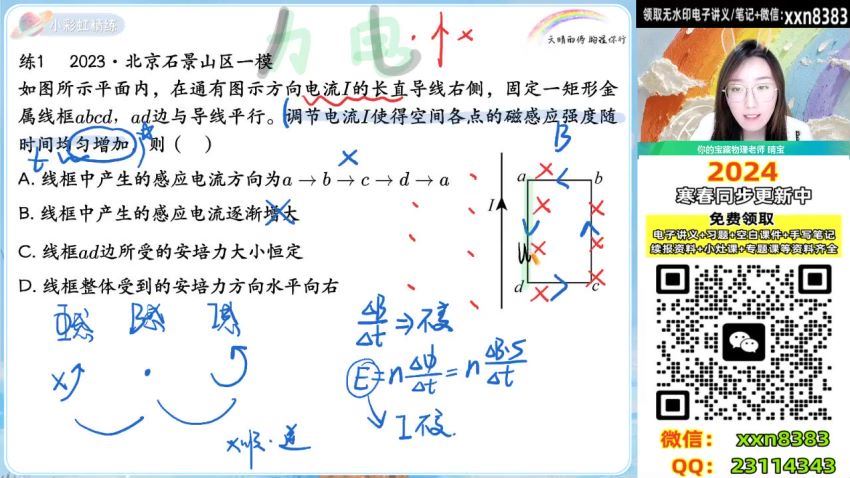 小彩虹精练
力 电
天晴雨停 胸腹你行
领取无水印电子讲义/笔记+微信：xxn8383
练1 2023·北京石景山区一模
如图所示平面内，在通有图示方向电流I的长直导线右侧，固定一矩形金
属线框abcd，ad边与导线平行。调节电流I使得空间各点的磁感应强度随
时间均匀增加，则（ ）
t
B
A. 线框中产生的感应电流方向为a→b→c→d→a
B. 线框中产生的感应电流逐渐增大
C. 线框ad边所受的安培力大小恒定
D. 线框整体受到的安培力方向水平向右
I
a b
d c
B感 I感
ΔB/Δt ⇒ 不变
E = n ΔΦ/Δt = n ΔB·S/Δt
I不变.
你的宝藏物理老师 晴宝
2024
寒春同步更新中
免费领取
电子讲义+习题+空白课件+手写笔记
续报资料+小灶课+专题课等资料齐全
微信： xxn8383
QQ： 23114343